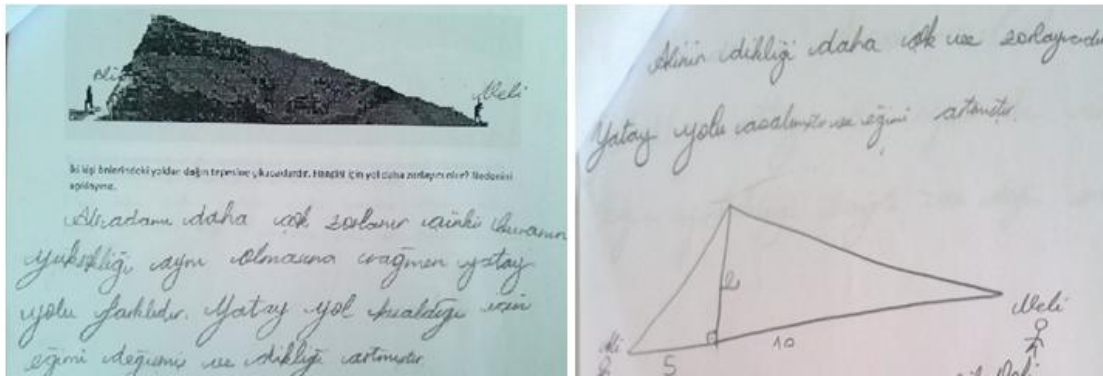 Ali
Veli
İki kişi önlerindeki yoldan dağın tepesine çıkacaklardır. Hangisi için yol daha zorlayıcı olur? Nedenini
açıklayınız.
daha çok zorlanır çünkü duvarın
yüksekliği aynı olmasına rağmen yatay
yolu farklıdır. Yatay yol kısaldığı için
eğimi değişmiş ve dikliği artmıştır.
Alinin dikliği daha çok ve zorlayıcıdır
Yatay yolu azalmıştır ve eğimi artmıştır.
Ali
Veli
5
10
Veli